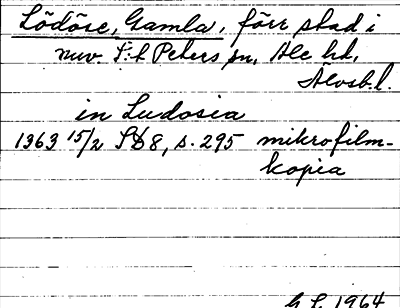 Lödöse, Gamla, förr stad i
nuv. S:t Peters sn, Ale hd,
Älvsb.l.
in Ludosia
1363 15/2 SD8, s. 295 mikrofilm-
kopia
G.L. 1964